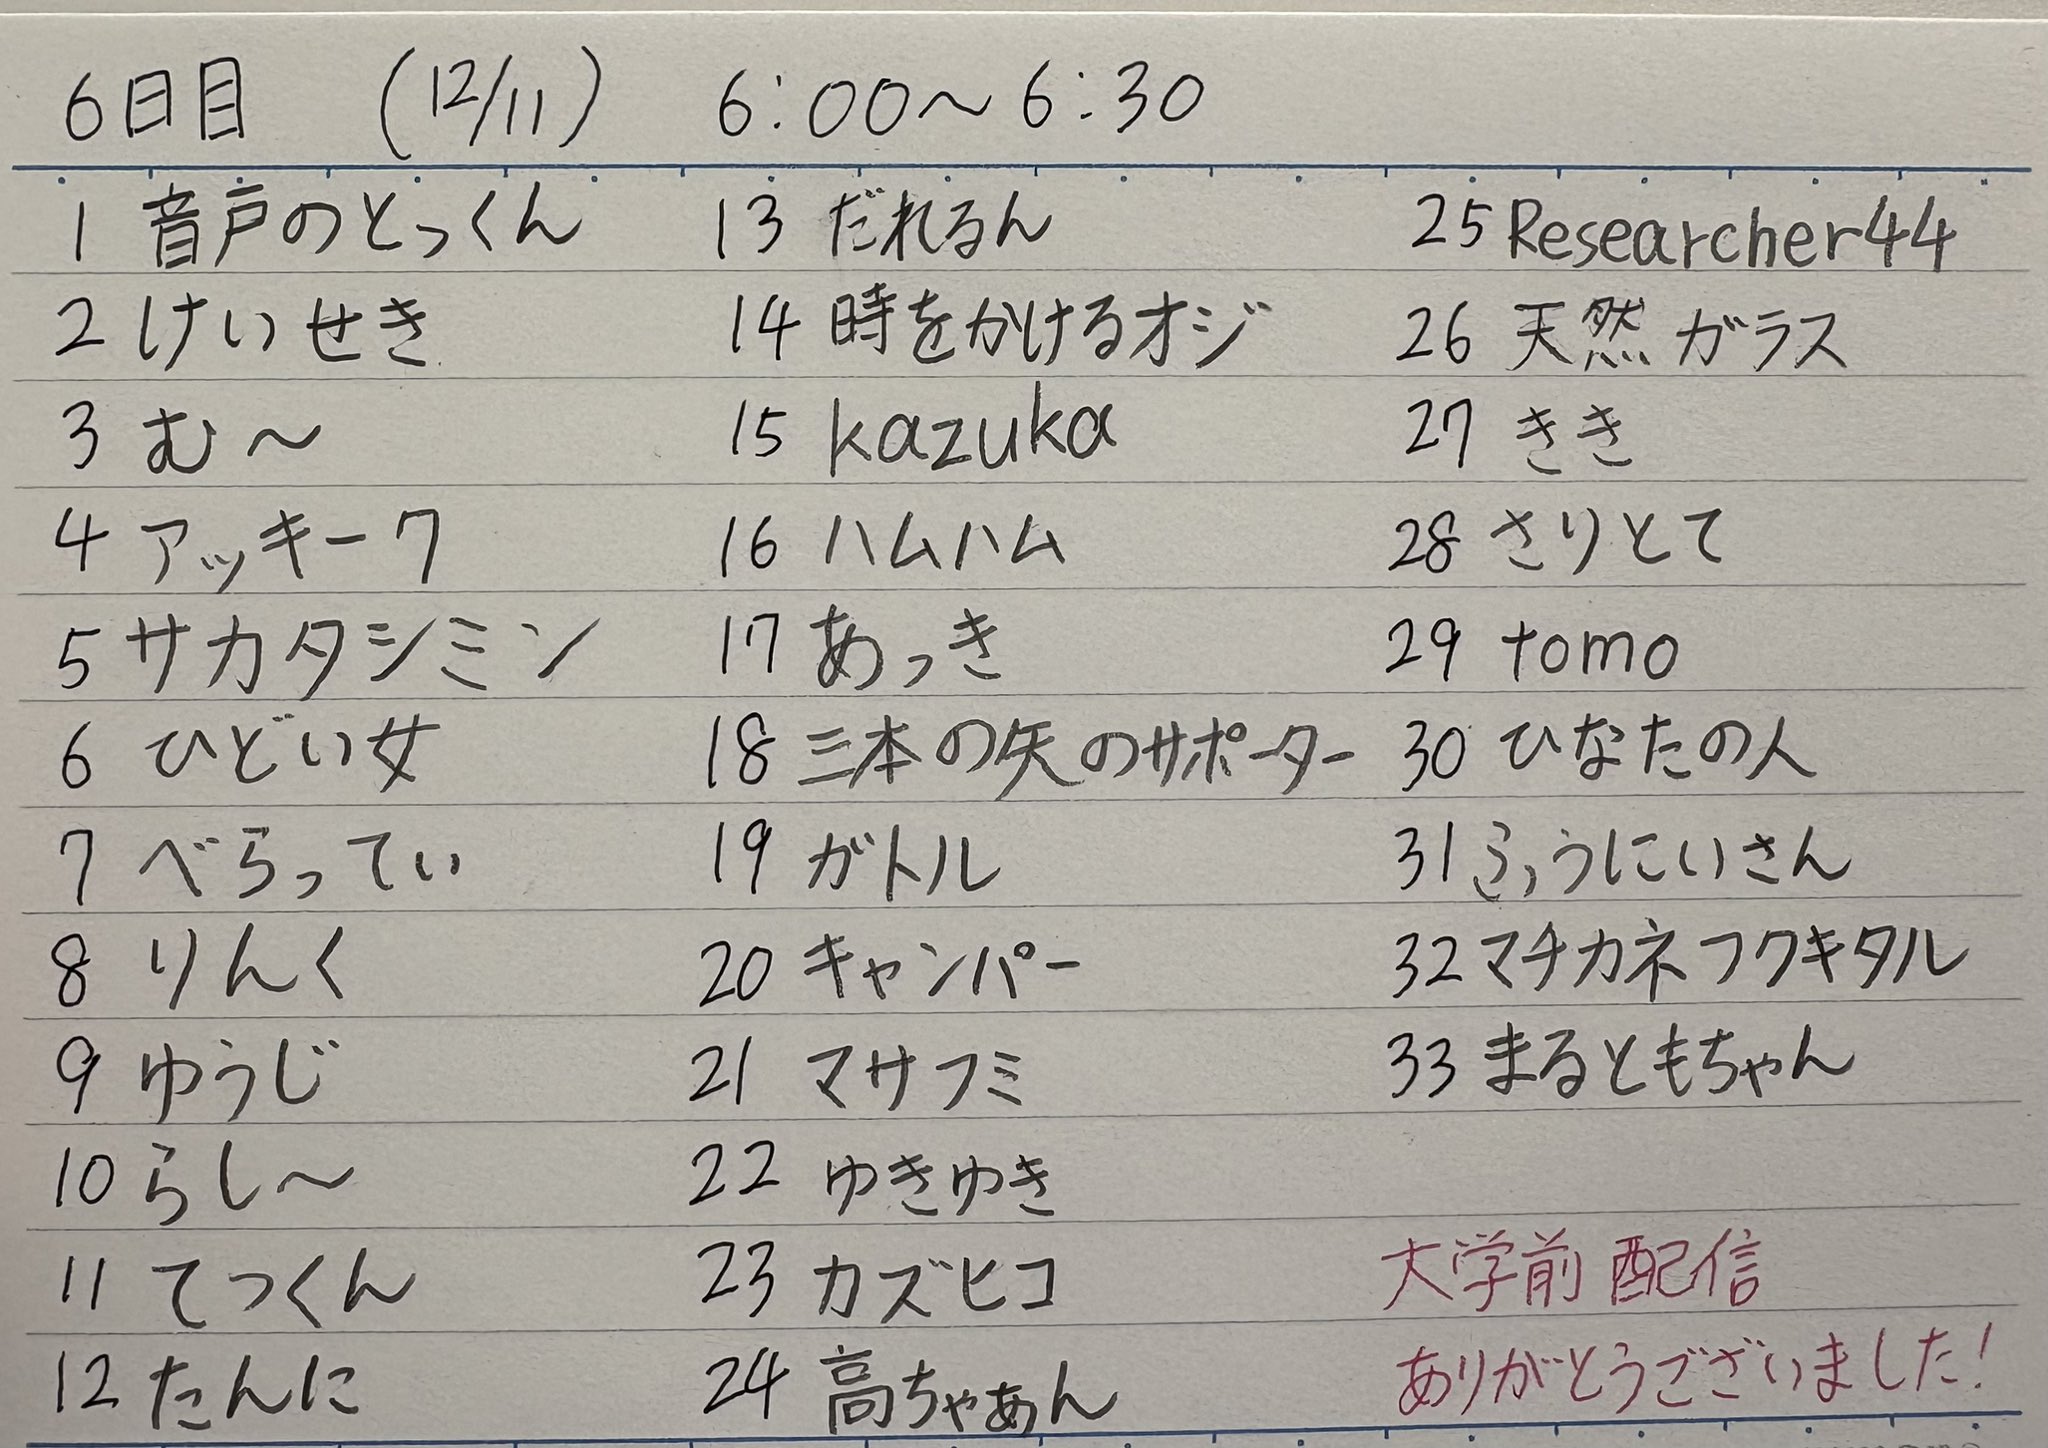 6日目 (12/11) 6:00〜6:30
1 音戸のとっくん
2 けいせき
3 む〜
4 アッキー7
5 サカタシミン
6 ひどい女
7 べらってぃ
8 りんく
9 ゆうじ
10 らし〜
11 てっくん
12 たんに
13 だれるん
14 時をかけるオジ
15 kazuka
16 ハムハム
17 あっき
18 三本の矢のサポーター
19 ガトル
20 キャンパー
21 マサフミ
22 ゆきゆき
23 カズヒコ
24 高ちゃあん
25 Researcher44
26 天然ガラス
27 きき
28 さりとて
29 tomo
30 ひなたの人
31 ふうにいさん
32 マチカネフクキタル
33 まるともちゃん
大学前配信
ありがとうございました!